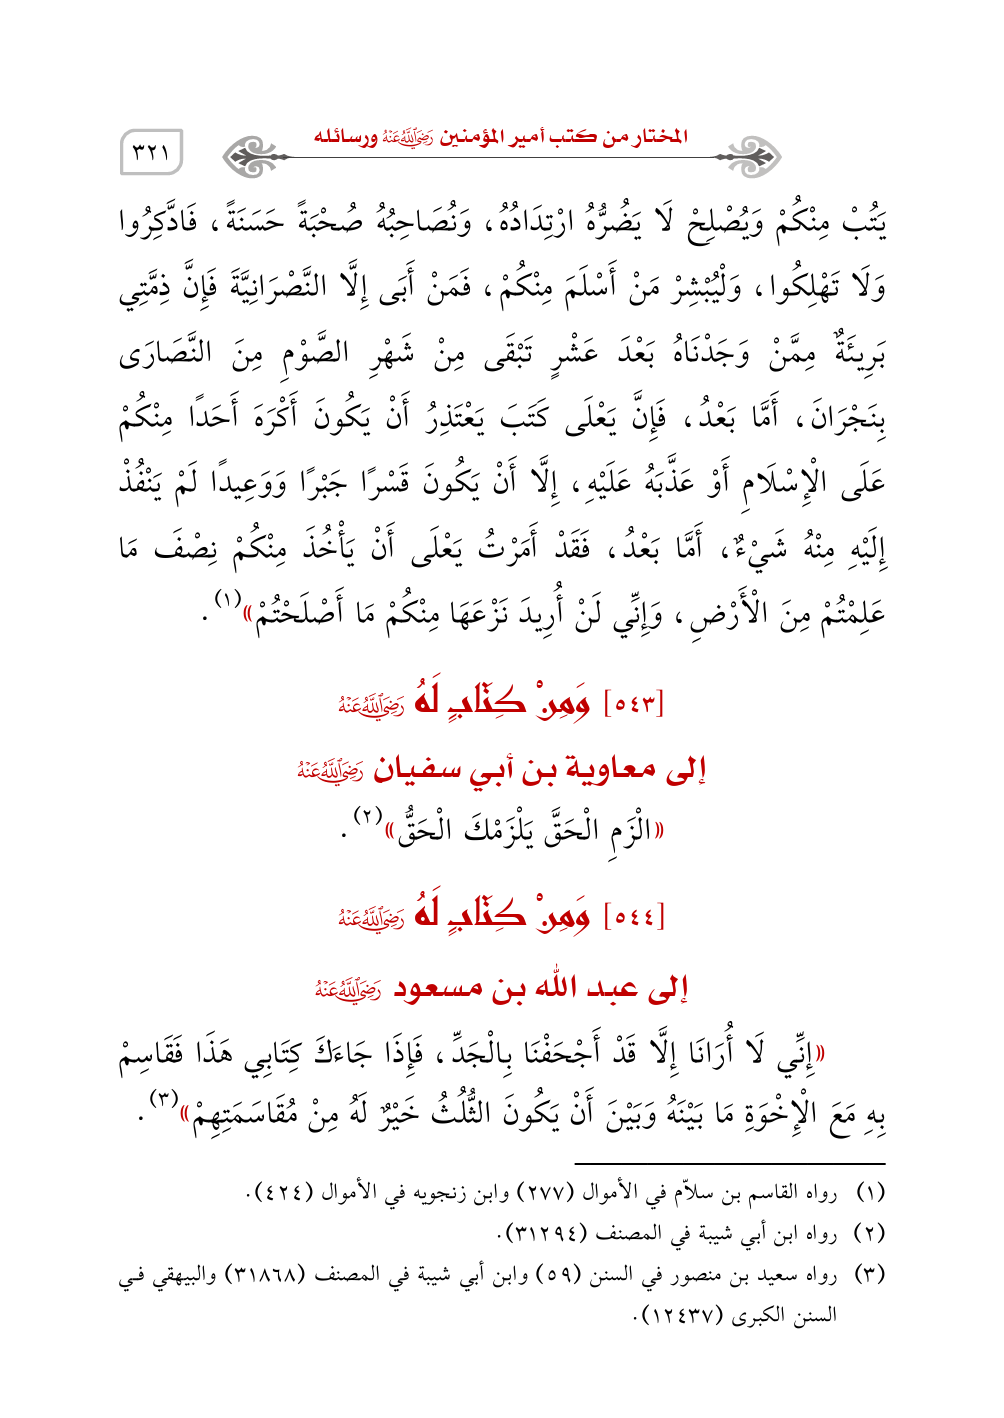 المختار من كتب أمير المؤمنين رَضِيَ اللَّهُ عَنْهُ ورسائله
٣٢١
يَتُبْ مِنْكُمْ وَيُصْلِحْ لَا يَضُرُّهُ ارْتِدَادُهُ، وَنُصَاحِبُهُ صُحْبَةً حَسَنَةً، فَادَّكِرُوا
وَلَا تَهْلِكُوا، وَلْيُبْشِرْ مَنْ أَسْلَمَ مِنْكُمْ، فَمَنْ أَبَى إِلَّا النَّصْرَانِيَّةَ فَإِنَّ ذِمَّتِي
بَرِيئَةٌ مِمَّنْ وَجَدْنَاهُ بَعْدَ عَشْرٍ تَبْقَى مِنْ شَهْرِ الصَّوْمِ مِنَ النَّصَارَى
بِنَجْرَانَ، أَمَّا بَعْدُ، فَإِنَّ يَعْلَى كَتَبَ يَعْتَذِرُ أَنْ يَكُونَ أَكْرَهَ أَحَدًا مِنْكُمْ
عَلَى الْإِسْلَامِ أَوْ عَذَّبَهُ عَلَيْهِ، إِلَّا أَنْ يَكُونَ قَسْرًا جَبْرًا وَوَعِيدًا لَمْ يَنْفُذْ
إِلَيْهِ مِنْهُ شَيْءٌ، أَمَّا بَعْدُ، فَقَدْ أَمَرْتُ يَعْلَى أَنْ يَأْخُذَ مِنْكُمْ نِصْفَ مَا
عَلِمْتُمْ مِنَ الْأَرْضِ، وَإِنِّي لَنْ أُرِيدَ نَزْعَهَا مِنْكُمْ مَا أَصْلَحْتُمْ»(١).
[٥٤٣] وَمِنْ كِتَابٍ لَهُ رَضِيَ اللَّهُ عَنْهُ
إلى معاوية بن أبي سفيان رَضِيَ اللَّهُ عَنْهُ
«الْزَمِ الْحَقَّ يَلْزَمْكَ الْحَقُّ»(٢).
[٥٤٤] وَمِنْ كِتَابٍ لَهُ رَضِيَ اللَّهُ عَنْهُ
إلى عبد الله بن مسعود رَضِيَ اللَّهُ عَنْهُ
«إِنِّي لَا أُرَانَا إِلَّا قَدْ أَجْحَفْنَا بِالْجَدِّ، فَإِذَا جَاءَكَ كِتَابِي هَذَا فَقَاسِمْ
بِهِ مَعَ الْإِخْوَةِ مَا بَيْنَهُ وَبَيْنَ أَنْ يَكُونَ الثُّلُثُ خَيْرٌ لَهُ مِنْ مُقَاسَمَتِهِمْ»(٣).
(١) رواه القاسم بن سلاّم في الأموال (٢٧٧) وابن زنجويه في الأموال (٤٢٤).
(٢) رواه ابن أبي شيبة في المصنف (٣١٢٩٤).
(٣) رواه سعيد بن منصور في السنن (٥٩) وابن أبي شيبة في المصنف (٣١٨٦٨) والبيهقي في
السنن الكبرى (١٢٤٣٧).